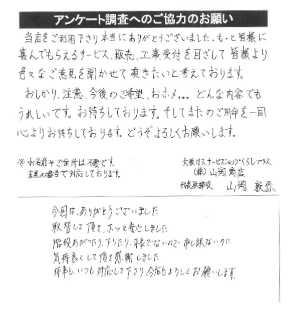 アンケート調査へのご協力のお願い
当店をご利用下さり本当にありがとうございました。もっと皆様に
喜んでもらえるサービス、販売、工事受付を目ざして皆様より
色々なご意見を聞かせて頂きたいと考えております。
おしかり、注意、今後のご希望、おホメ...どんな内容でも
うれしいです。お待ちしております。そしてまたのご用命を一同
心よりお待ちしております。どうぞよろしくお願いします。
※お名前やご住所は不要です。
番号で対応しております。
大阪ガスサービスショップ
(株)山岡商店
代表取締役 山岡
今回は、ありがとうございました
修理して頂き、ホッと安心しました
階段あがったり、下りたり、何度もないので申し訳ないのに
気持良くして頂き感謝しました
何事もいつも対応して下さり今后もよろしくお願いします。